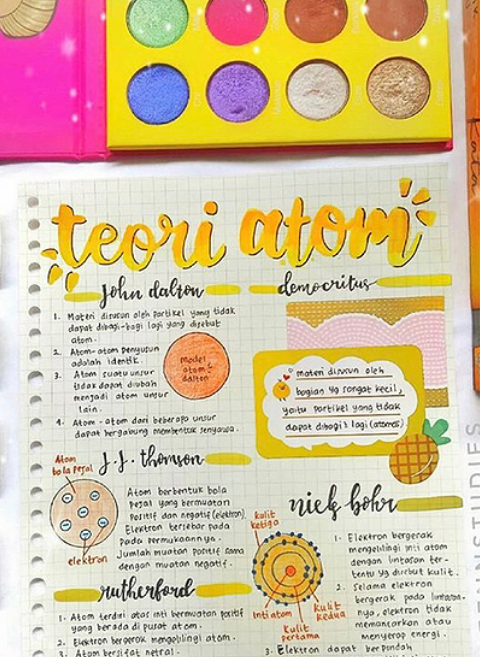 teori atom
john dalton
1. Materi disusun oleh partikel yang tidak
dapat dibagi-bagi lagi yang disebut
atom.
2. Atom-atom penyusun
adalah identik.
3. Atom suatu unsur
tidak dapat diubah
menjadi atom unsur
lain.
4. Atom-atom dari beberapa unsur
dapat bergabung membentuk senyawa.
Model
atom
dalton
democritus
materi disusun oleh
bagian yg sangat kecil,
yaitu partikel yang tidak
dapat dibagi2 lagi (atomos)
J.J. thomson
Atom
bola pejal
elektron
Atom berbentuk bola
pejal yang bermuatan
positif dan negatif (elektron).
Elektron tersebar pada
permukaannya.
Jumlah muatan positif sama
dengan muatan negatif.
rutherford
1. Atom terdiri atas inti bermuatan positif
yang berada di pusat atom.
2. Elektron bergerak mengelilingi atom.
3. Atom bersifat netral.
niels bohr
kulit
ketiga
Inti atom
kulit
pertama
kulit
kedua
1. Elektron bergerak
mengelilingi inti atom
dengan lintasan ter-
tentu yg disebut kulit.
2. Selama elektron
bergerak pada lintasan-
nya, elektron tidak
memancarkan atau
menyerap energi.
3. Elektron dapat berpindah